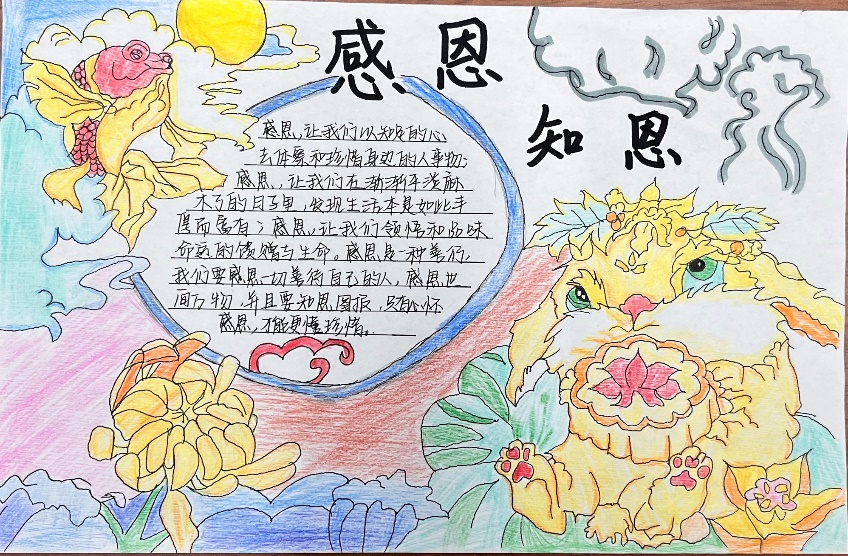 感恩
知恩
感恩,让我们以知足的心
去体察和珍惜身边的人事物;
感恩,让我们在渐渐平淡麻
木了的日子里,发现生活本是如此丰
厚而富有;感恩,让我们领悟和品味
命运的馈赠与生命。感恩是一种善行,
我们要感恩一切善待自己的人,感恩世
间万物,并且要知恩图报,只有心怀
感恩,才能更懂珍惜。